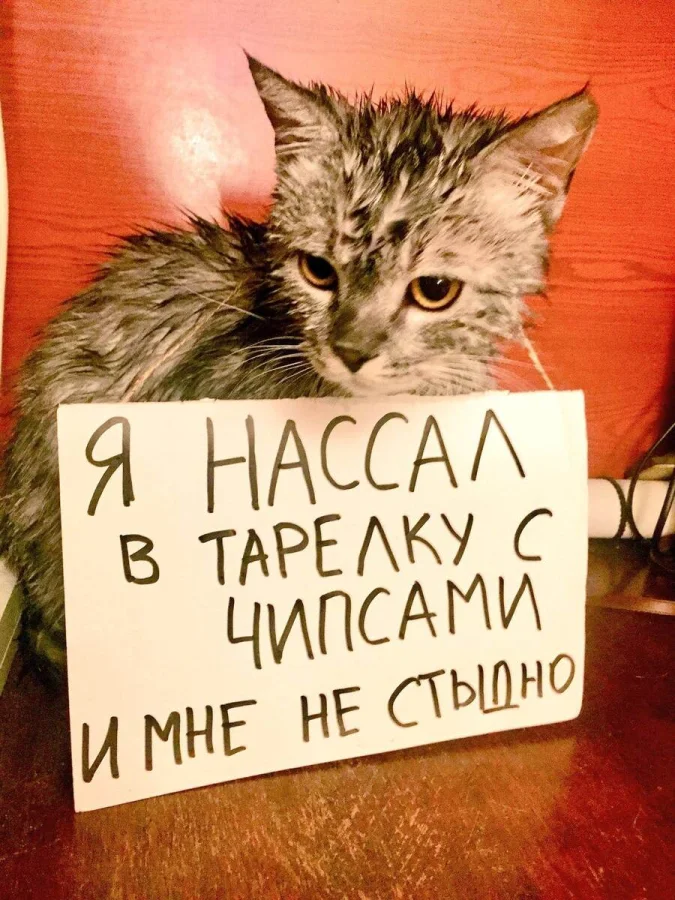 Я НАССАЛ
В ТАРЕЛКУ С
ЧИПСАМИ
И МНЕ НЕ СТЫДНО